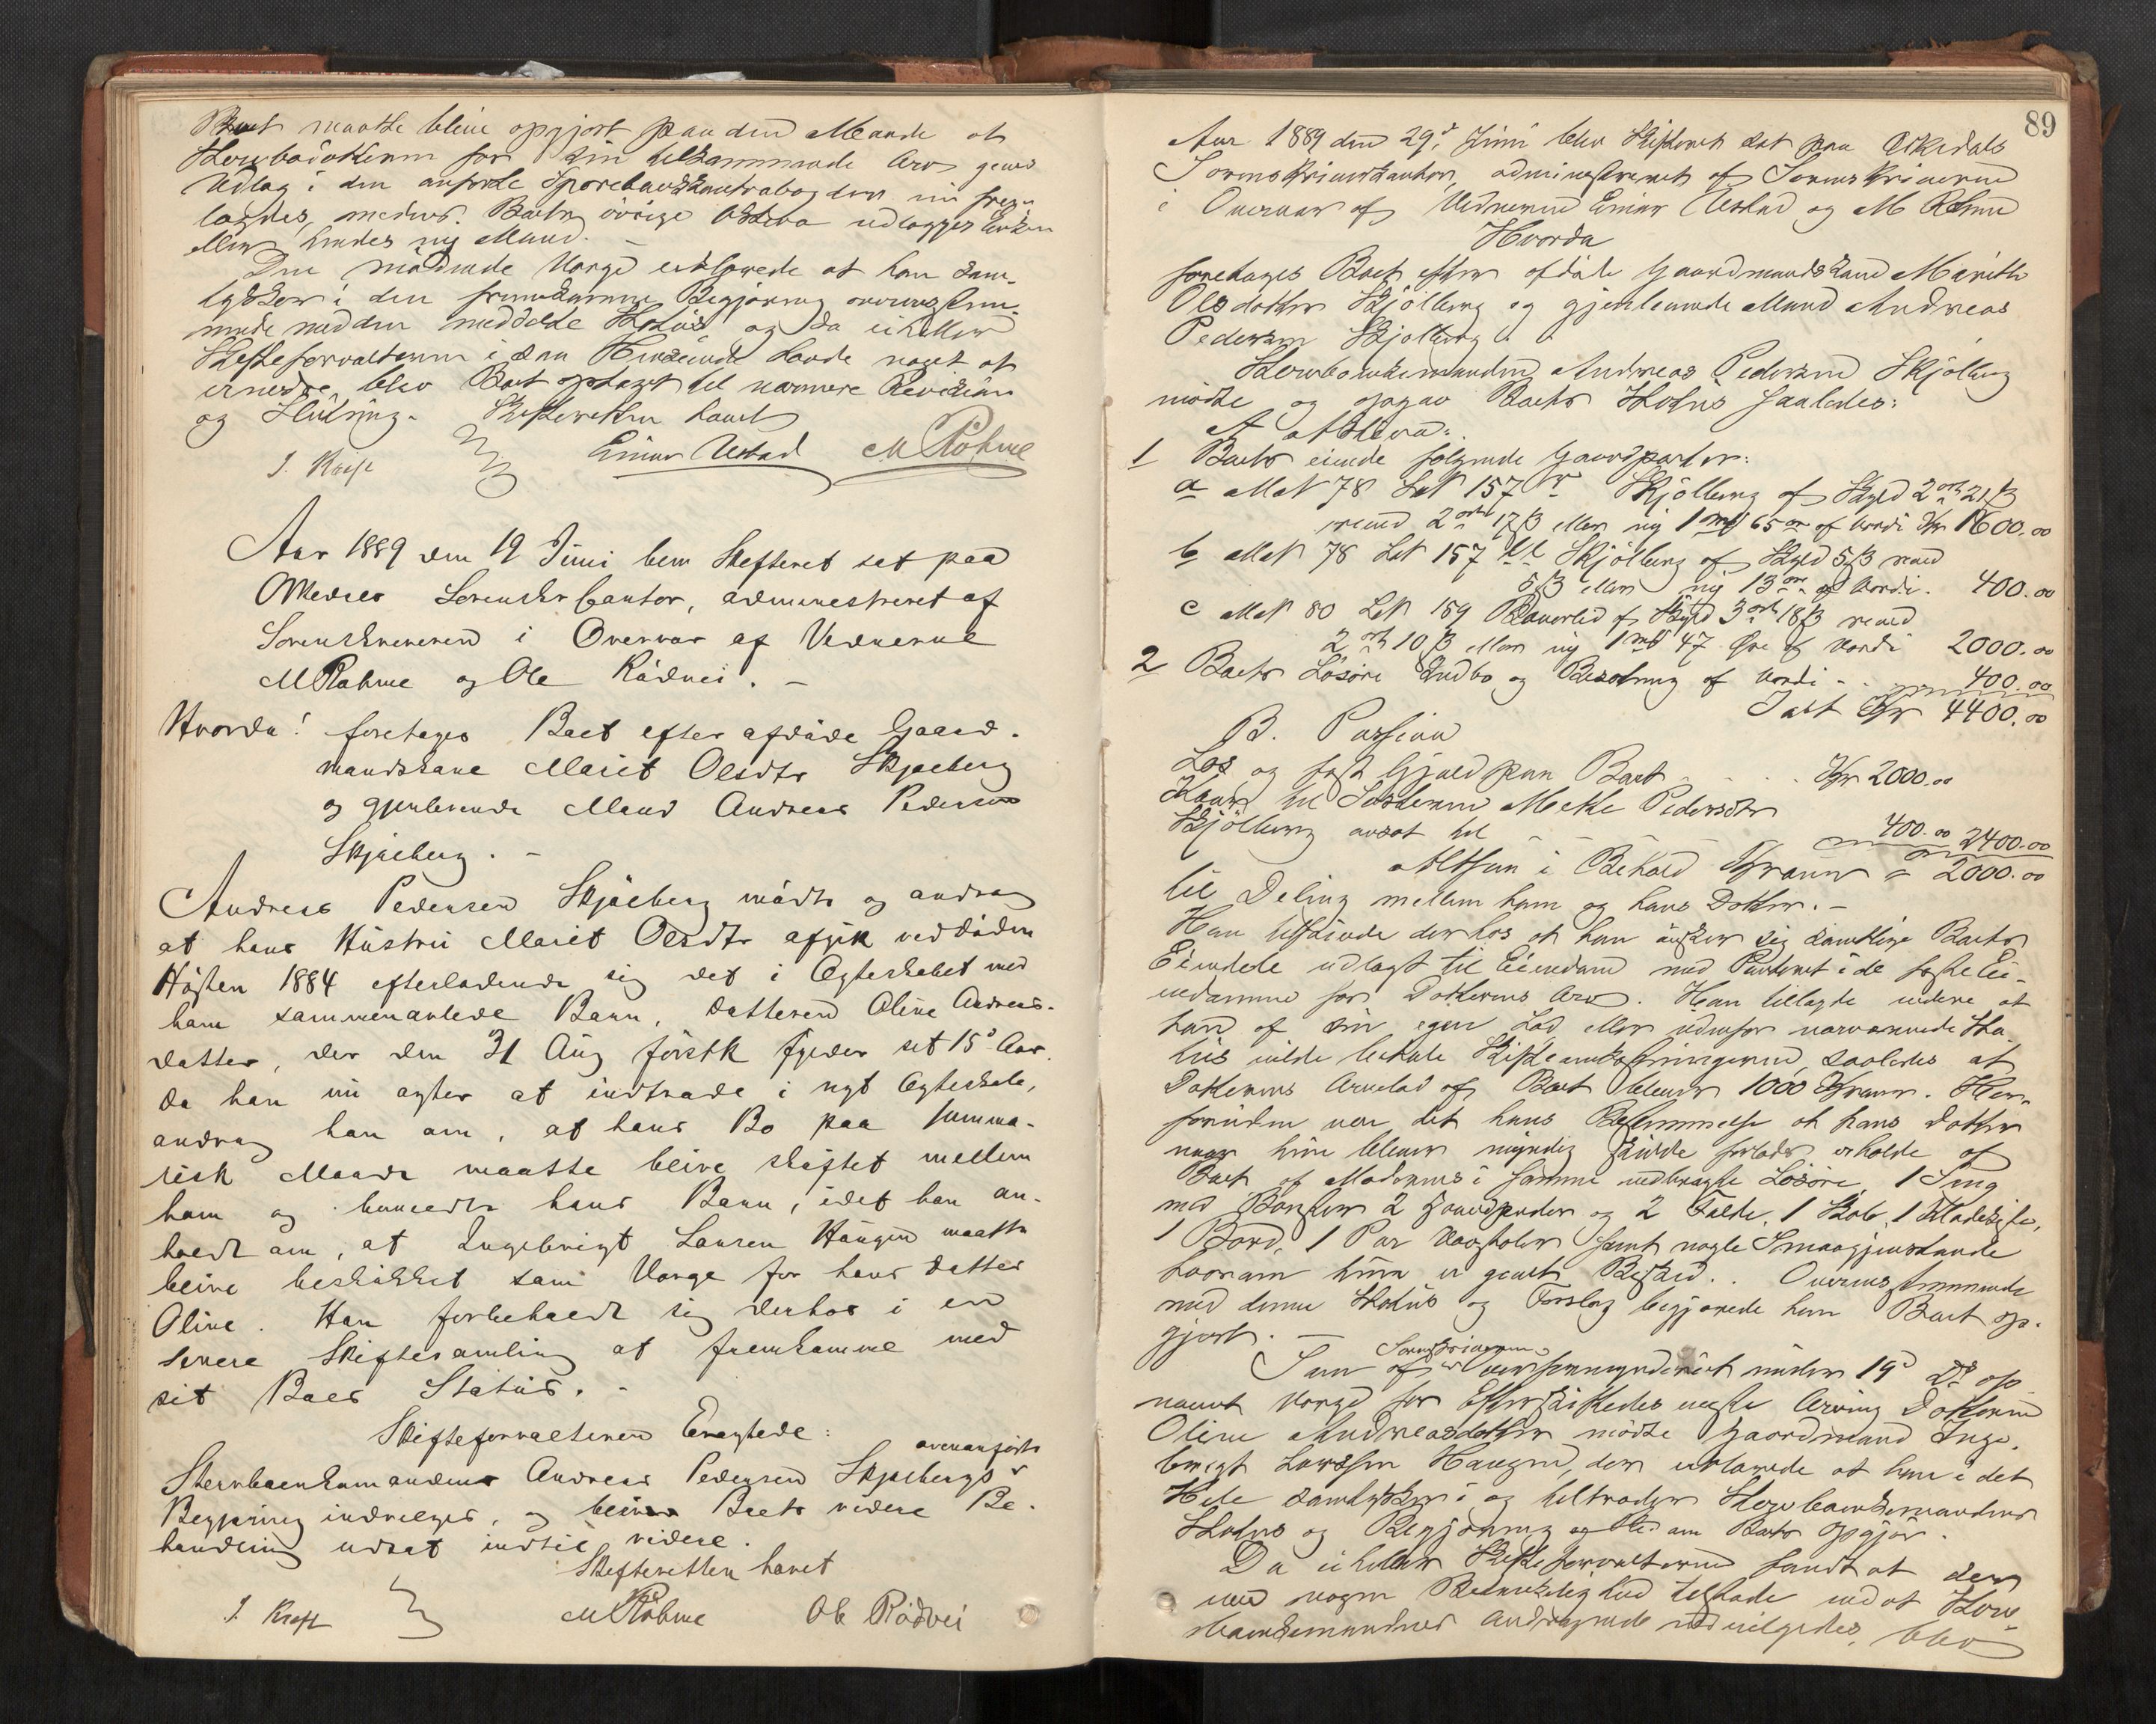 Boet maatte blive opgjort paa den Maade at
Stervbodatteren for sin tilkommende Arv gives
Udlag i den anførte Sparebankkontrabog der nu frem-
lagdes, medens Boets øvrige Aktiva udlægges Enken
eller hendes ny Mand. –
Den mødende Værge erklærede at han sam-
tykker i den fremkomne Begjæring overensstem-
mende med den meddelte Status og da ei heller
Skifteforvalteren i saa Henseende havde noget at
erindre, blev Boet optaget til nærmere Revision
og Slutning. Skifteretten hævet
J. Kraft Einar Ustad M Rohme
Aar 1889 den 19 Juni blev Skifteret sat paa
Orkedals Sorenskr Contor, administreret af
Sorenskriveren i Overvær af Vidnerne
M Rohme og Ole Rödvei. –
Hvorda! foretages Boet efter afdøde Gaard-
mandskone Marit Olsdtr Skjølberg
og gjenlevende Mand Andreas Pedersen
Skjølberg. –
Andreas Pedersen Skjølberg mødte og androg
at hans Hustru Marit Olsdtr afgik ved døden
Høsten 1884 efterladende sig det i Ægteskabet med
ham sammenavlede Barn, datteren Oline Andreas-
datter, der den 31 Aug førstk fylder sit 15de Aar.
da han nu agter at indtræde i nyt Ægteskab,
androg han om, at hans Bo paa summa-
risk Maade maatte blive skiftet mellem
ham og bemeldte hans Barn, idet han an-
holdt om, at Ingebrigt Larsen Haugen maatte
blive beskikket som Værge for hans datter
Oline. Han forbeholdt sig derhos i en
senere Skiftesamling at fremkomme med
sit Boes Status. –
Skifteforvalteren Eragtede:
Stervboenkemandens Andreas Pedersen Skjølbergs ovenanførte
Begjæring indvilges, og bliver Boets videre Be-
handling udsat indtil videre.
Skifteretten hævet
J. Kraft M Rohme Ole Rödvei
89
Aar 1889 den 29de Juni blev Skifteret sat paa Orkedals
Sorenskriverkontor, administreret af Sorenskriveren
i Overvær af Vidnerne Einar Ustad og M Rohme
Hvorda
foretages Boet efter afdøde Gaardmandskone Marith
Olsdatter Skjölberg og gjenlevende Mand Andreas
Pedersen Skjölberg.
Stervboenkemanden Andreas Pedersen Skjölberg
mødte og opgav Boets Status saaledes:
A Aktiva:
1 Boets eiende følgende Gaardparter:
a Mat 78 Løb 157 Skjölberg af Skyld 2 ort 21 ß
reved 2 ort 17 ß eller ny 1 mrk 65 øre af Værdi Kr 1600.00
b Mat 78 Løb 157 Skjölberg af Skyld 5 ß reved
5 ß eller ny 13 øre af Værdi. 400.00
c Mat 80 Løb 159 af Skyld 3 ort 18 ß reved
2 ort 10 ß eller ny 1 mrk 47 Øre af Værdi 2000.00
2 Boets Løsøre Indbo og Besætning af Værdi - - 400.00
Ialt Kr 4400.00
B. Passiva
Løs og fast Gjæld paa Boet - - - Kr 2000.00
Kaar til Søsteren Mette Pedersdtr
Skjölberg ansat til - - - - 400.00 2400.00
Altsaa i Behold Kroner = 2000.00
til Deling mellem ham og hans Datter. –
Han tilføiede derhos at han ønsker sig samtlige Boets
Eiendele udlagt til Eiendom med Panteret i de faste Ei-
endomme for Datterens Arv. Han tillagde videre at
han af sin egen Lod eller udenfor nærværende Sta-
tus vilde betale Skifteomkostningerne, saaledes at
Datterens Arvelod af Boet bliver 1000 Kroner. Her-
foruden var det hans Bestemmelse at hans Datter
naar hun bliver myndig skulde forlods erholde af
Boet af Moderens i samme indbragte Løsøre, 1 Seng
med Bolster 2 Hovedpuder og 2 Felde, 1 Skab, 1 Klædekiste,
1 Bord, 1 Par Vævstoler samt nogle Smaagjenstande
hvorom hun er givet Besked. . Overensstemmende
med denne Status og Forslag begjærede han Boet op-
gjort. –
Som af Sorenskriveren som Overformynderiet under 19de ds op-
nævnt Værge for Efterskiftedes eneste Arving Datteren
Oline Andreasdatter mødte Gaardmand Inge-
brigt Larssen Haugen, der erklærede at han i det
Hele samtykker i og tiltræder Stervboenkemandens
Status og Begjæring om Boets Opgjør.
Da ei heller Skifteforvalteren fandt at der
var nogen Betænkelighed tilstede ved at Sterv-
boenkemandens Andragende indvilgedes, blev